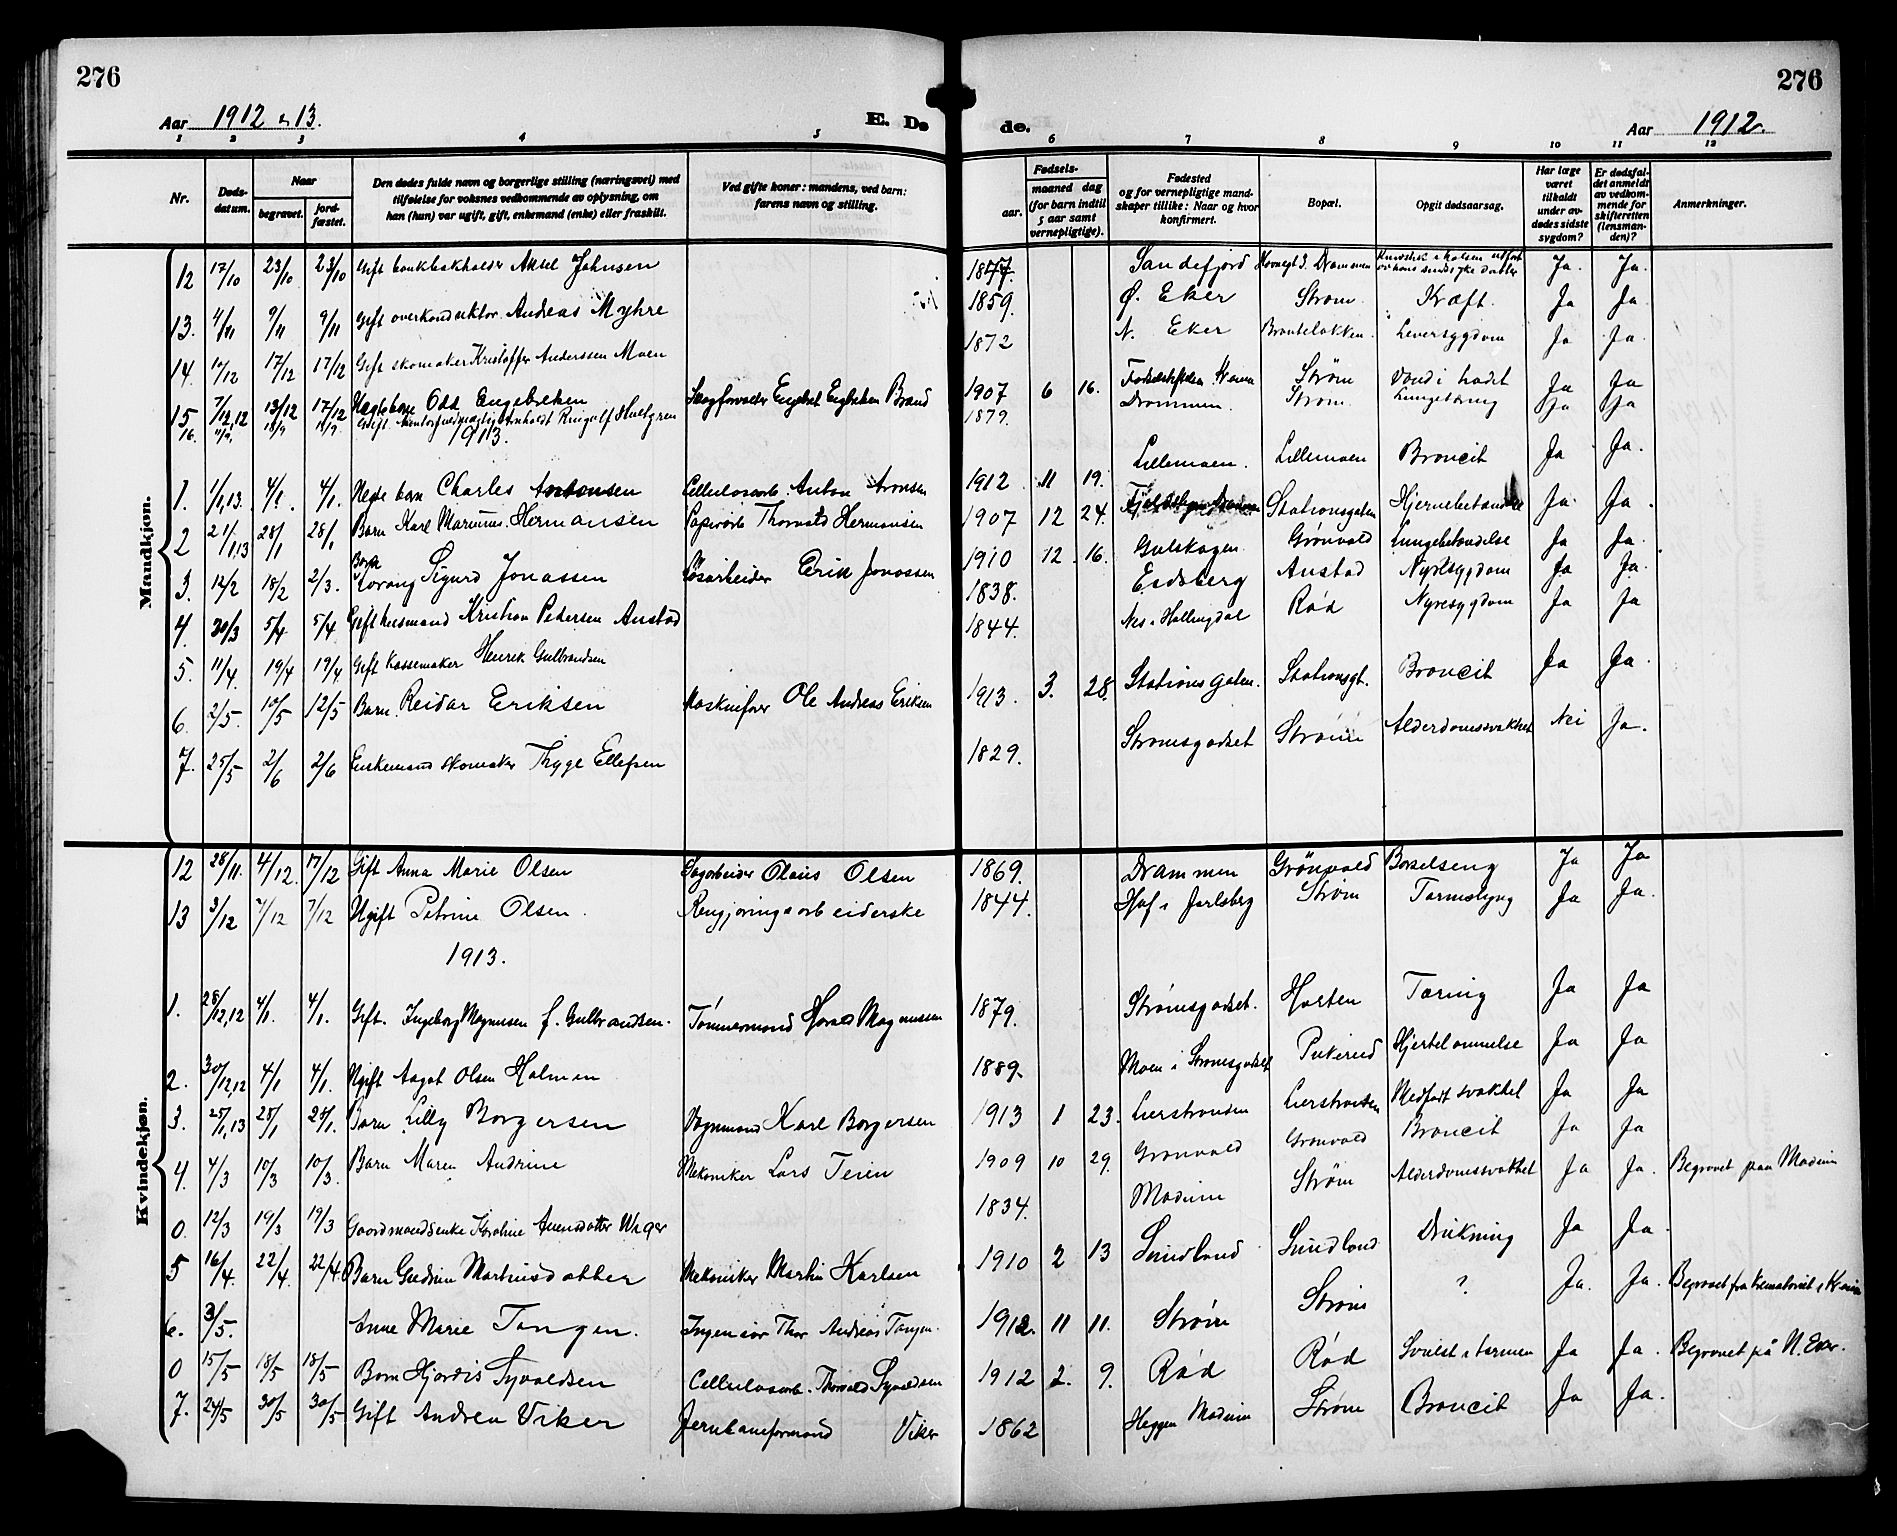 276
276
Aar 1912 & 13.
E. Dø
de.
Aar 1912.
1 2 3 4 5 6 7 8 9 10 11 12
Nr.
Døds-datum.
Naar
begravet.
jord-fæstet.
Den dødes fulde navn og borgerlige stilling (næringsvei) med tilføielse for voksnes vedkommende av oplysning, om han (hun) var ugift, gift, enkemand (enke) eller fraskilt.
Ved gifte koner: mandens, ved barn: farens navn og stilling.
Fødsels-
aar.
maaned dag
(for barn indtil 5 aar samt vernepligtige).
Fødested og for vernepligtige mandskaper tillike: Naar og hvor konfirmert.
Bopæl.
Opgit dødsaarsag.
Har læge været tilkaldt under avdødes sidste sygdom?
Er dødsfaldet anmeldt av vedkommende for skifteretten (lensmanden)?
Anmerkninger.
Mandkjøn.
12 17/10 23/10 23/10 Gift bankbokholder Aksel Johnsen 1877. Sandefjord Drammen Ja. Ja.
13. 4/11 9/11 9/11 Gift overkonduktør Andreas Myhre 1859. Ø. Eker Strøm Kræft. Ja Ja.
14. 11/12 17/12 17/12 Gift skomaker Kristoffer Anderssen Moen 1872 N. Eker Leversygdom Ja Ja.
15 7/12,12 13/12 17/12 Odd Engebretsen 1907 6 16. Strøm Vand i hodet Ja Ja
16. Hultgren 1879. Drammen. Strøm. Ja Ja
1913.
1. 1/1,13. 4/1. 4/1. Charles Antonsen Cellulosearb. Anton Aronsen 1912 11 19. Lillemoen. Lillemoen Broncit Ja Ja.
2 21/1,13 28/1 28/1 Barn Karl Marinius Hermansen Papirarb Thorvald Hermansen 1907 12 24. Stationsgaten Ja. Ja.
3. 12/2 18/2 2/3. Barn Sigurd Jonassen Løsarbeider Erik Jonassen 1910 12. 16. Gulskogen Grønvold Lungebetændelse Ja Ja.
4. 30/3 5/4 5/4 Gift husmand Kristian Pedersen Austad 1838. Eidsberg Austad Nyresygdom Ja Ja.
5. 11/4. 19/4 19/4. Gift Kassemaker Henrik Gulbrandsen 1844. Nes i Hallingdal Rød Nyresygdom Ja Ja
6. 2/5. 10/5 12/5 Barn. Reidar Eriksen Maskinfører Ole Andreas Eriksen 1913. 3. 28. Stationsgaten. Stationsgt. Broncit Ja Ja.
7. 25/5 2/6 2/6 Enkemand skomaker Thyge Ellefsen 1829. Strømsgodset Strøm Alderdomssvakhet Nei Ja.
Kvindekjøn.
12 28/11. 4/12. 17/12 Gift Anna Marie Olsen Sagarbeider Olaus Olsen 1869. Drammen Grönvold Barselseng Ja Ja
13 3/12 7/12 7/12 Ugift Petrine Olsen. Rengjøringsarbeiderske 1844. Hof i Jarlsberg Strøm Tarmslyng Ja Ja.
1913.
1. 28/12,12 4/1. 4/1. Gift. Ingeborg Magnusen f. Gulbrandsen. Tømmermand Harald Magnussen 1879. Strømsgodset. Horten Tæring Ja Ja
2. 30/12,12 4/1 4/1. Ugift Aagot Olsen Holmen 1889. Moen i Strømsgodset Pukerud Hjertelammelse Ja Ja
3. 25/1,13 28/1 28/1. Barn Lilly Borgersen Vognmand Karl Borgersen 1913 1 23. Lierstranden Lierstranden Medfødt svakhet Ja Ja
4. 4/3 10/3 10/3. Barn Maren Andrine Mekaniker Lars Teien 1909 10 29. Grønvold Grønvold Broncit Ja Ja
0. 12/3 19/3 19/3 Gaardmandsenke Karoline 1834. Modum Strøm Alderdomssvakhet Ja Ja. Begravet paa Modum
5 16/4. 22/4. 22/4. Barn Gudrun Martinsdatter Mekaniker Martin Karlsen 1910 2 13 Sundland Sundland Drukning Ja Ja.
6. 3/5. Anne Marie Tangen. Ingeniør Thor Andreas Tangen. 1912. 11 11. Strøm Strøm ? Ja. Ja. Begravet fra krematoriet i Kr.ania
0 15/5 18/5 18/5 Barn Hjørdis Syvaldsen Cellulosearb. Thorvald Syvaldsen 1912 2. 9. Rød Rød Svulst i tarmen Ja Ja. Begravet på N. Eker.
7. 24/5 30/5 30/5 Gift Andrea Viker Jernbaneformand Viker 1862 Heggen Modum Strøm Broncit Ja Ja.